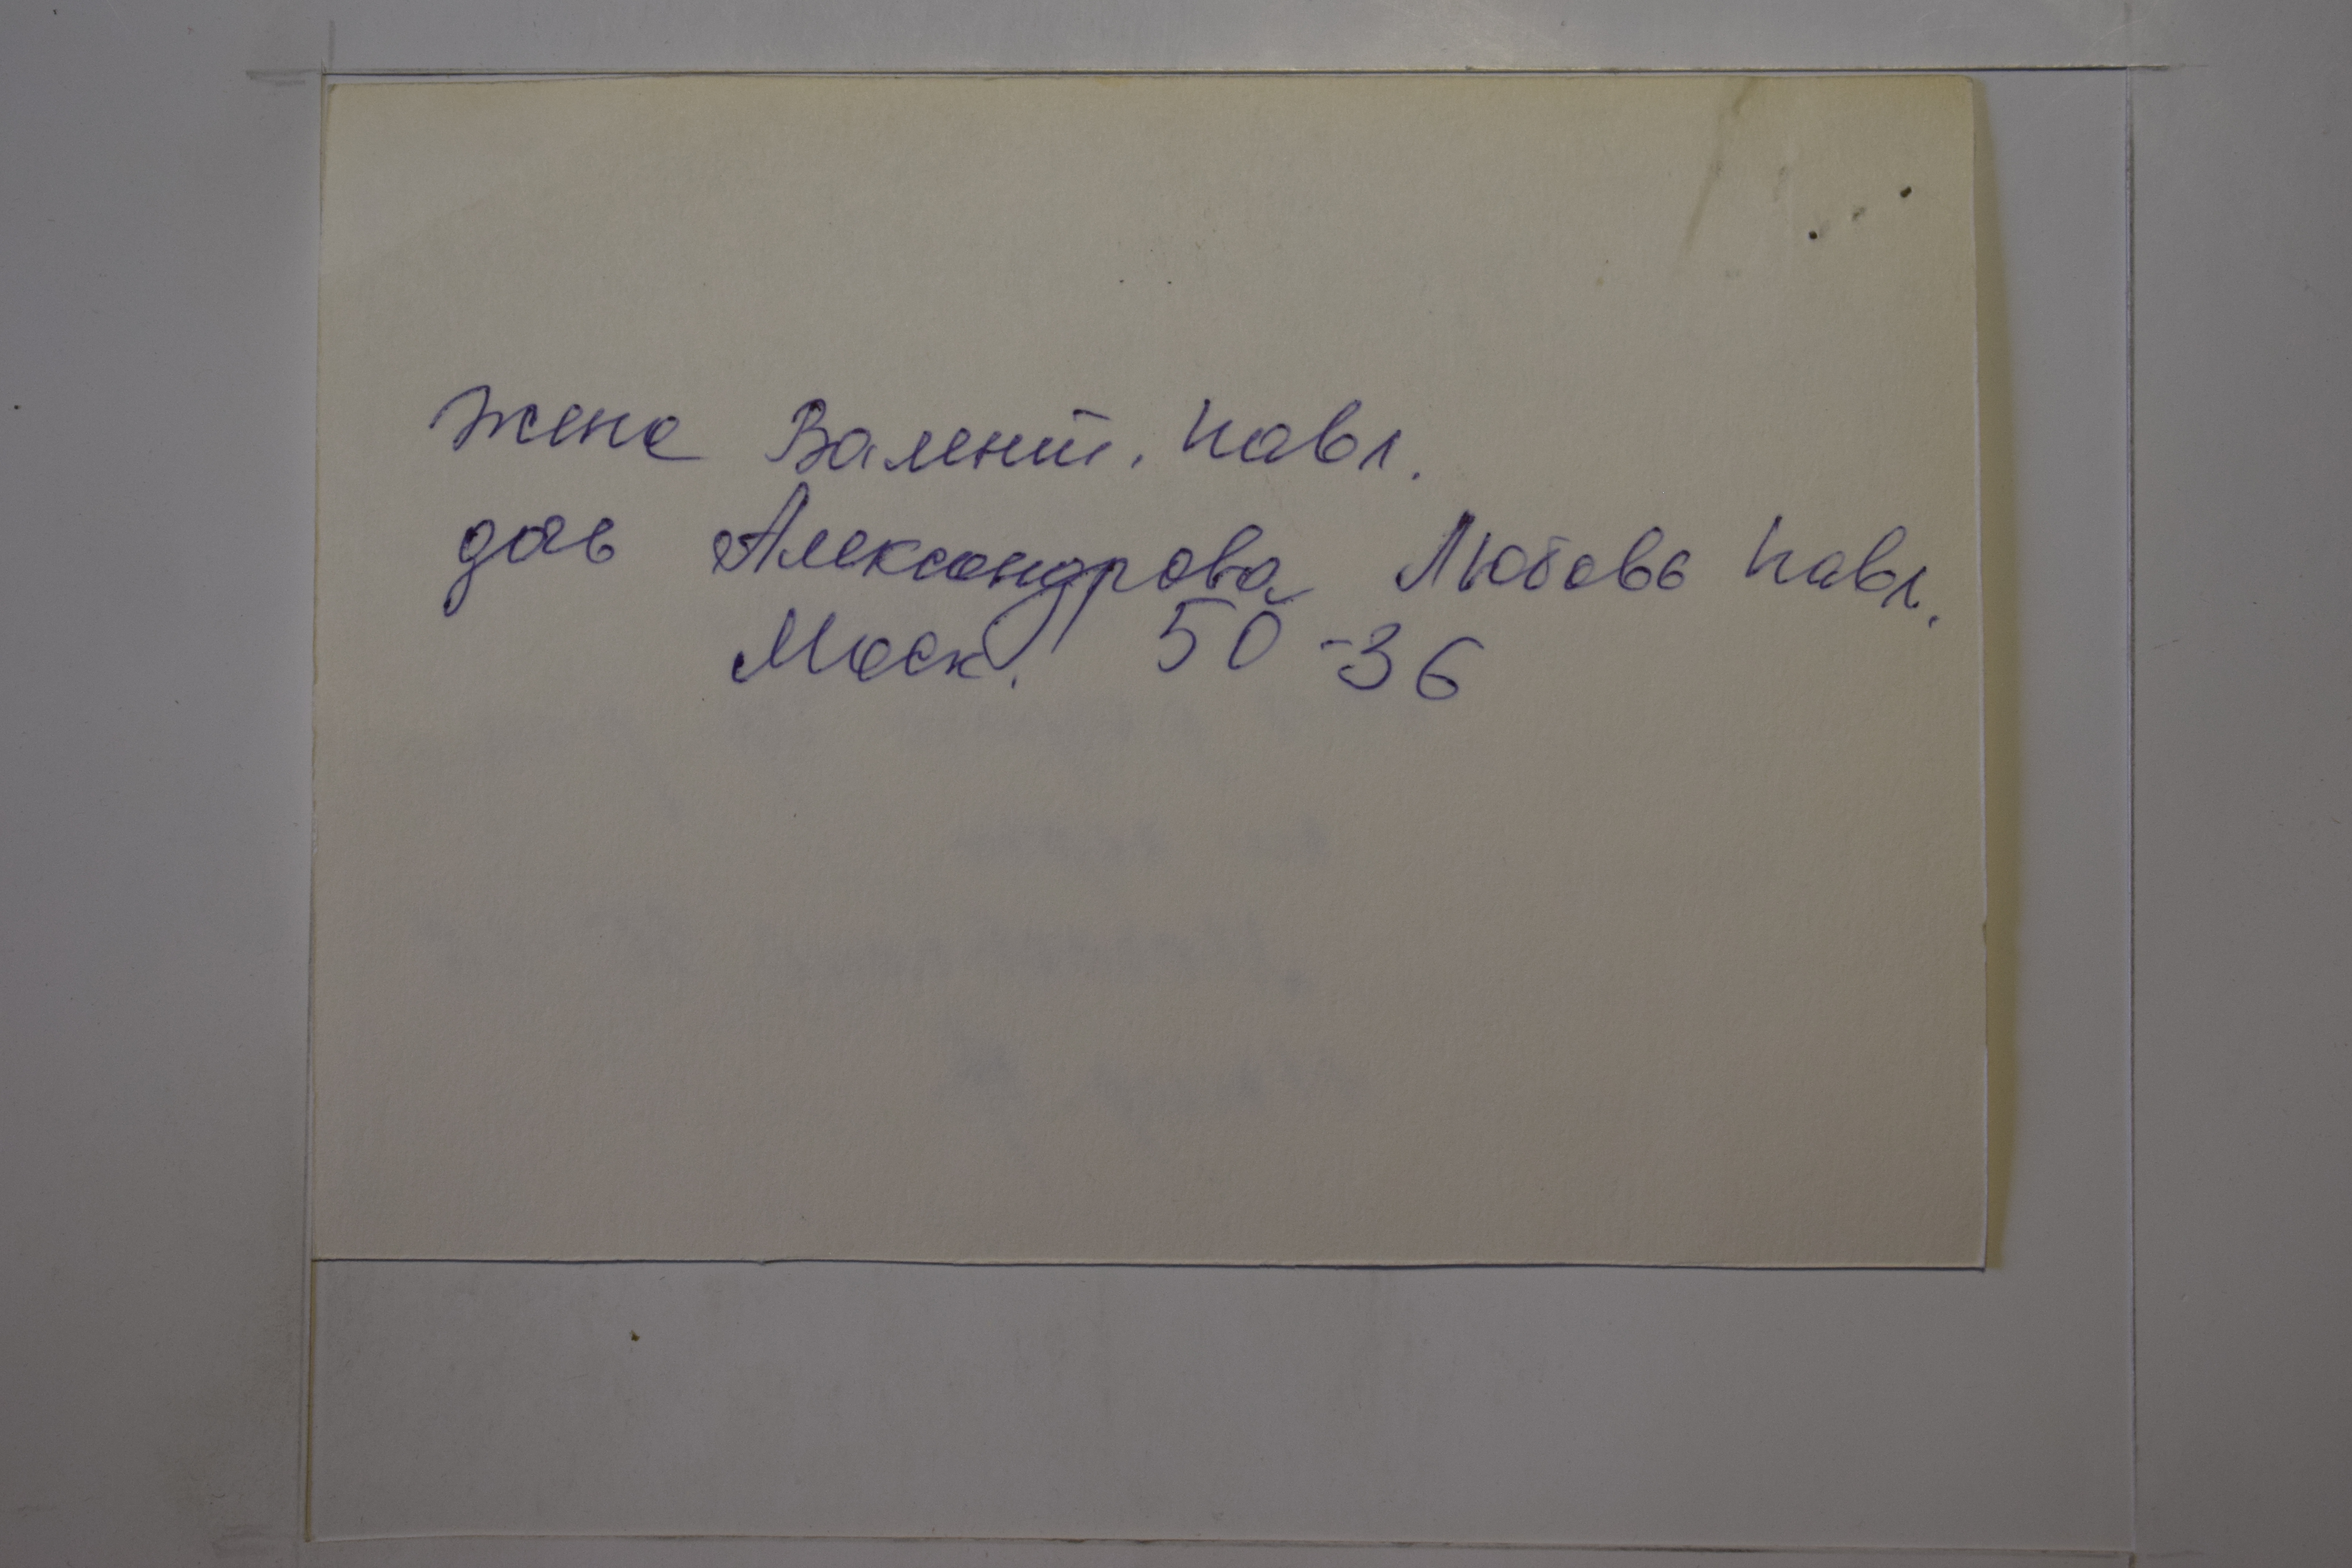 жена Валент. Павл.
дочь Александрова Любовь Павл.
Моск. 50-36